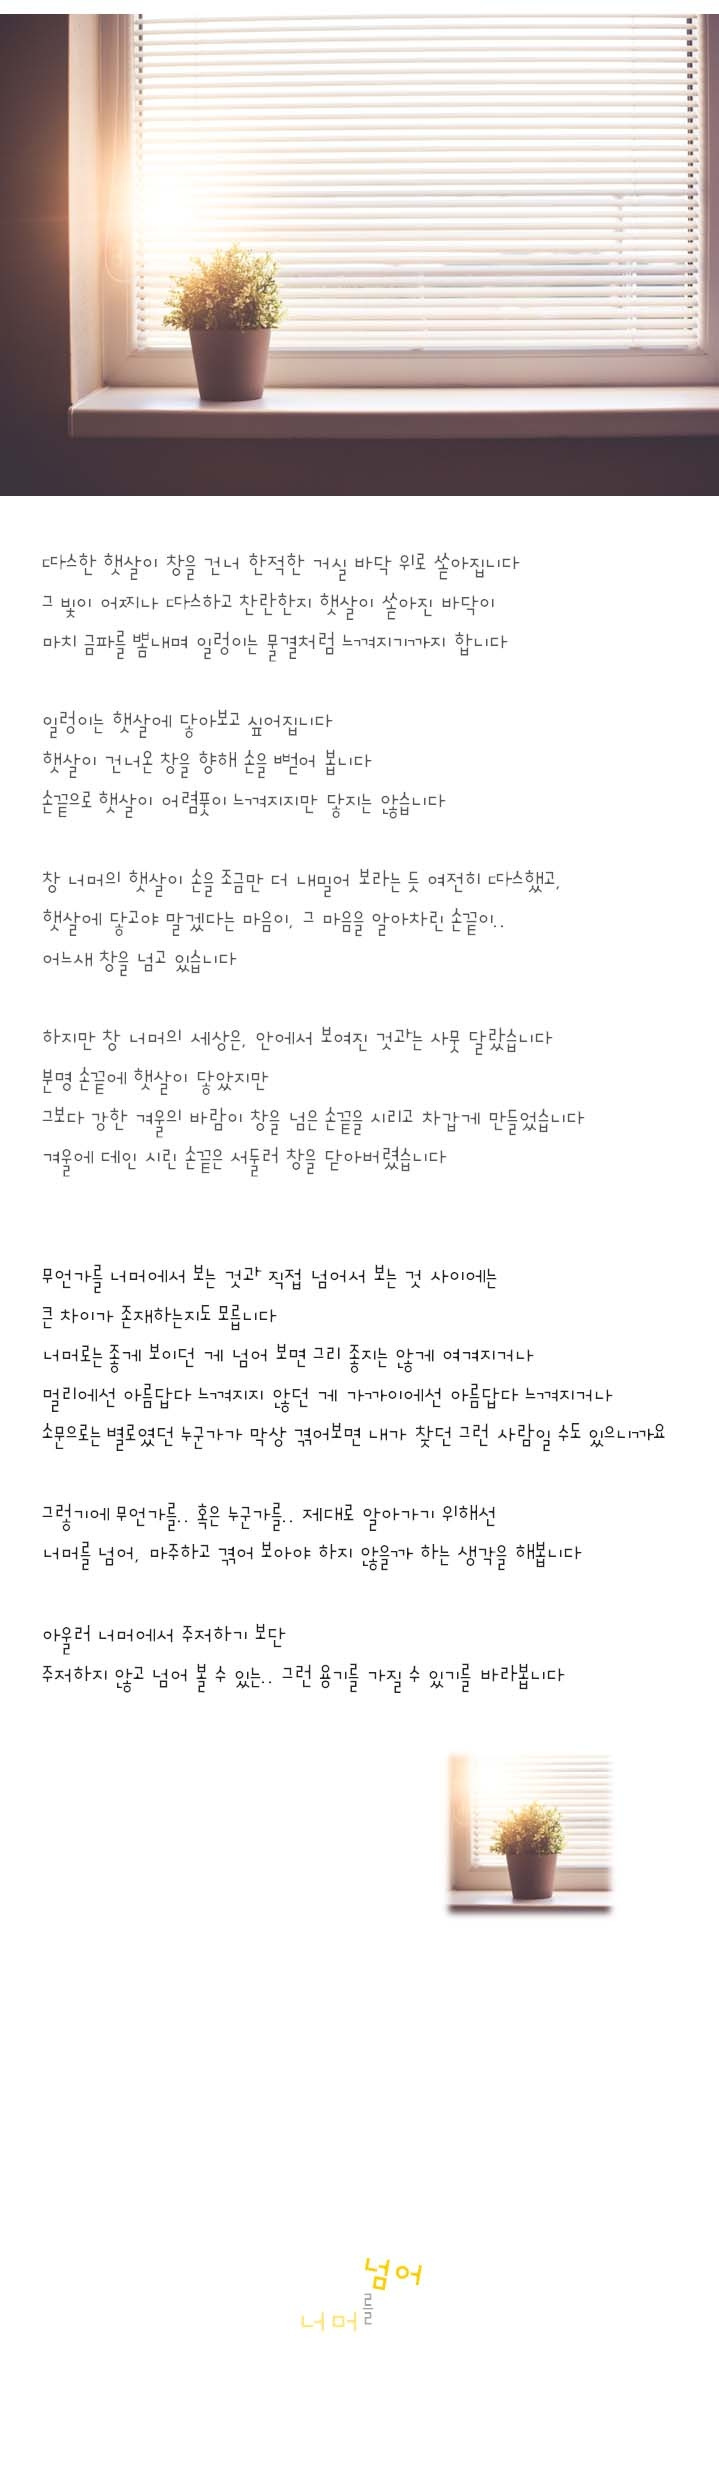 따스한 햇살이 창을 건너 한적한 거실 바닥 위로 쏟아집니다
그 빛이 어찌나 따스하고 찬란한지 햇살이 쏟아진 바닥이
마치 금파를 뽐내며 일렁이는 물결처럼 느껴지기까지 합니다
일렁이는 햇살에 닿아보고 싶어집니다
햇살이 건너온 창을 향해 손을 뻗어 봅니다
손끝으로 햇살이 어렴풋이 느껴지지만 닿지는 않습니다
창 너머의 햇살이 손을 조금만 더 내밀어 보라는 듯 여전히 따스했고,
햇살에 닿고야 말겠다는 마음이, 그 마음을 알아차린 손끝이..
어느새 창을 넘고 있습니다
하지만 창 너머의 세상은, 안에서 보여진 것과는 사뭇 달랐습니다
분명 손끝에 햇살이 닿았지만
그보다 강한 겨울의 바람이 창을 넘은 손끝을 시리고 차갑게 만들었습니다
겨울에 데인 시린 손끝은 서둘러 창을 닫아버렸습니다
무언가를 너머에서 보는 것과 직접 넘어서 보는 것 사이에는
큰 차이가 존재하는지도 모릅니다
너머로는 좋게 보이던 게 넘어 보면 그리 좋지는 않게 여겨지거나
멀리에선 아름답다 느껴지지 않던 게 가까이에선 아름답다 느껴지거나
소문으로는 별로였던 누군가가 막상 겪어보면 내가 찾던 그런 사람일 수도 있으니까요
그렇기에 무언가를.. 혹은 누군가를.. 제대로 알아가기 위해선
너머를 넘어, 마주하고 겪어 보아야 하지 않을까 하는 생각을 해봅니다
아울러 너머에서 주저하기 보단
주저하지 않고 넘어 볼 수 있는.. 그런 용기를 가질 수 있기를 바라봅니다
너머를 넘어